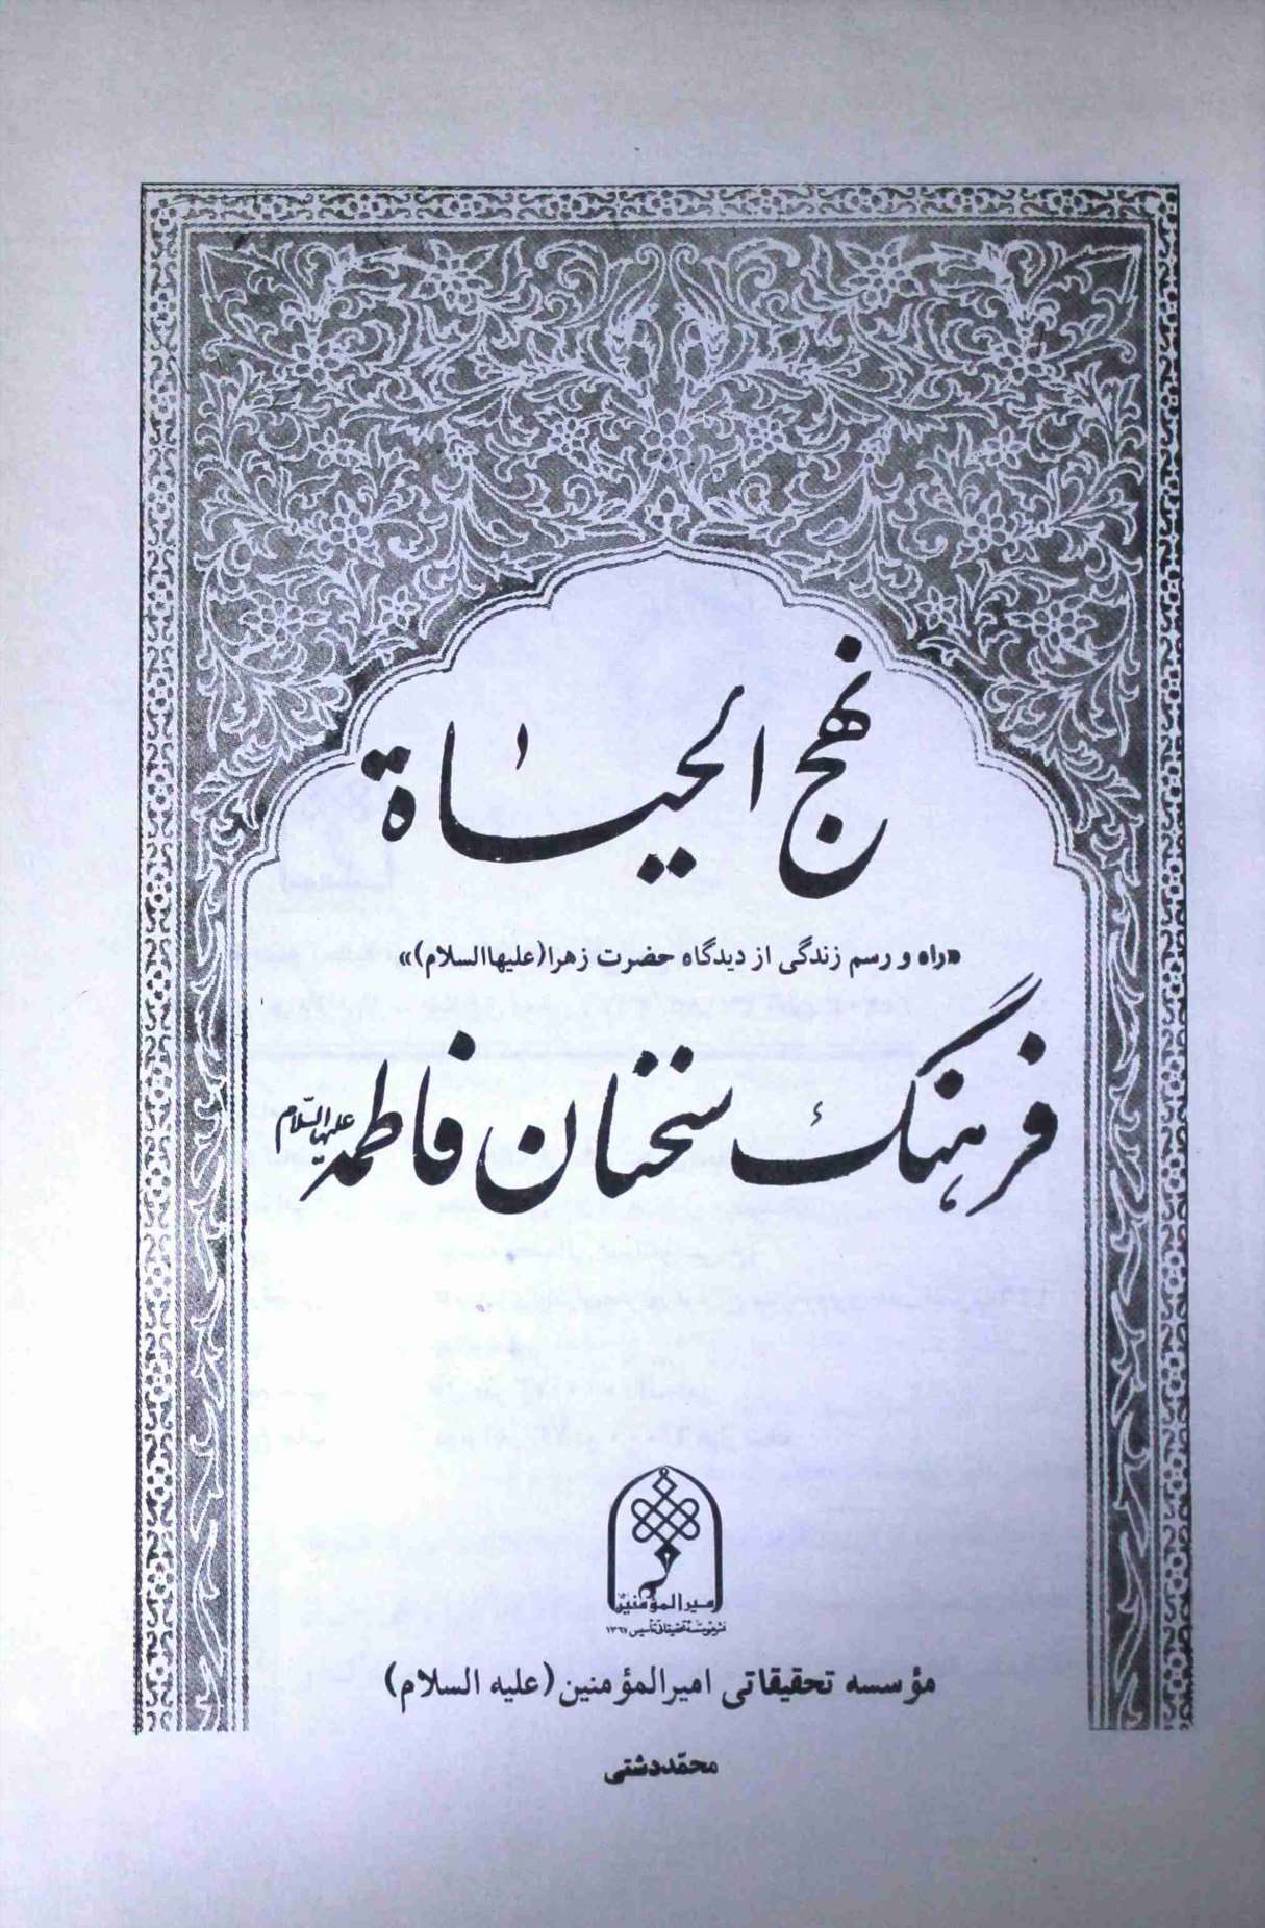 نهج الحیاة
«راه و رسم زندگی از دیدگاه حضرت زهرا(علیهاالسلام)»
فرهنگ سخنان فاطمه علیهاالسّلام
امیرالمؤمنین
مؤسسه تحقیقاتی امیرالمؤمنین (علیه السلام)
محمّددشتی